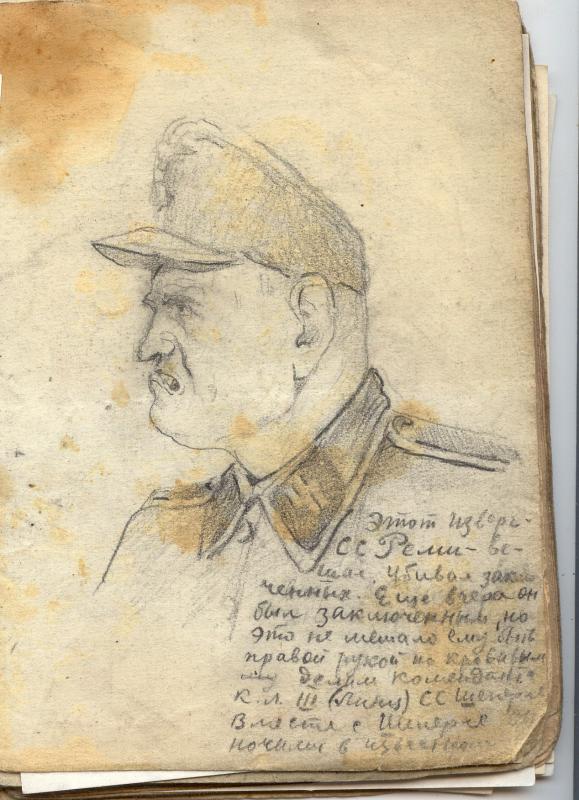 Этот изверг-
СС Реми- ве-
шал, убивал заклю
ченных. Еще вчера он
был заключенным, но
это не мешало ему быть
правой рукой по кровавым
делам коменданта
К.Л. III (Линц) СС Шеперле
Вместе с Шеперле
ночами в